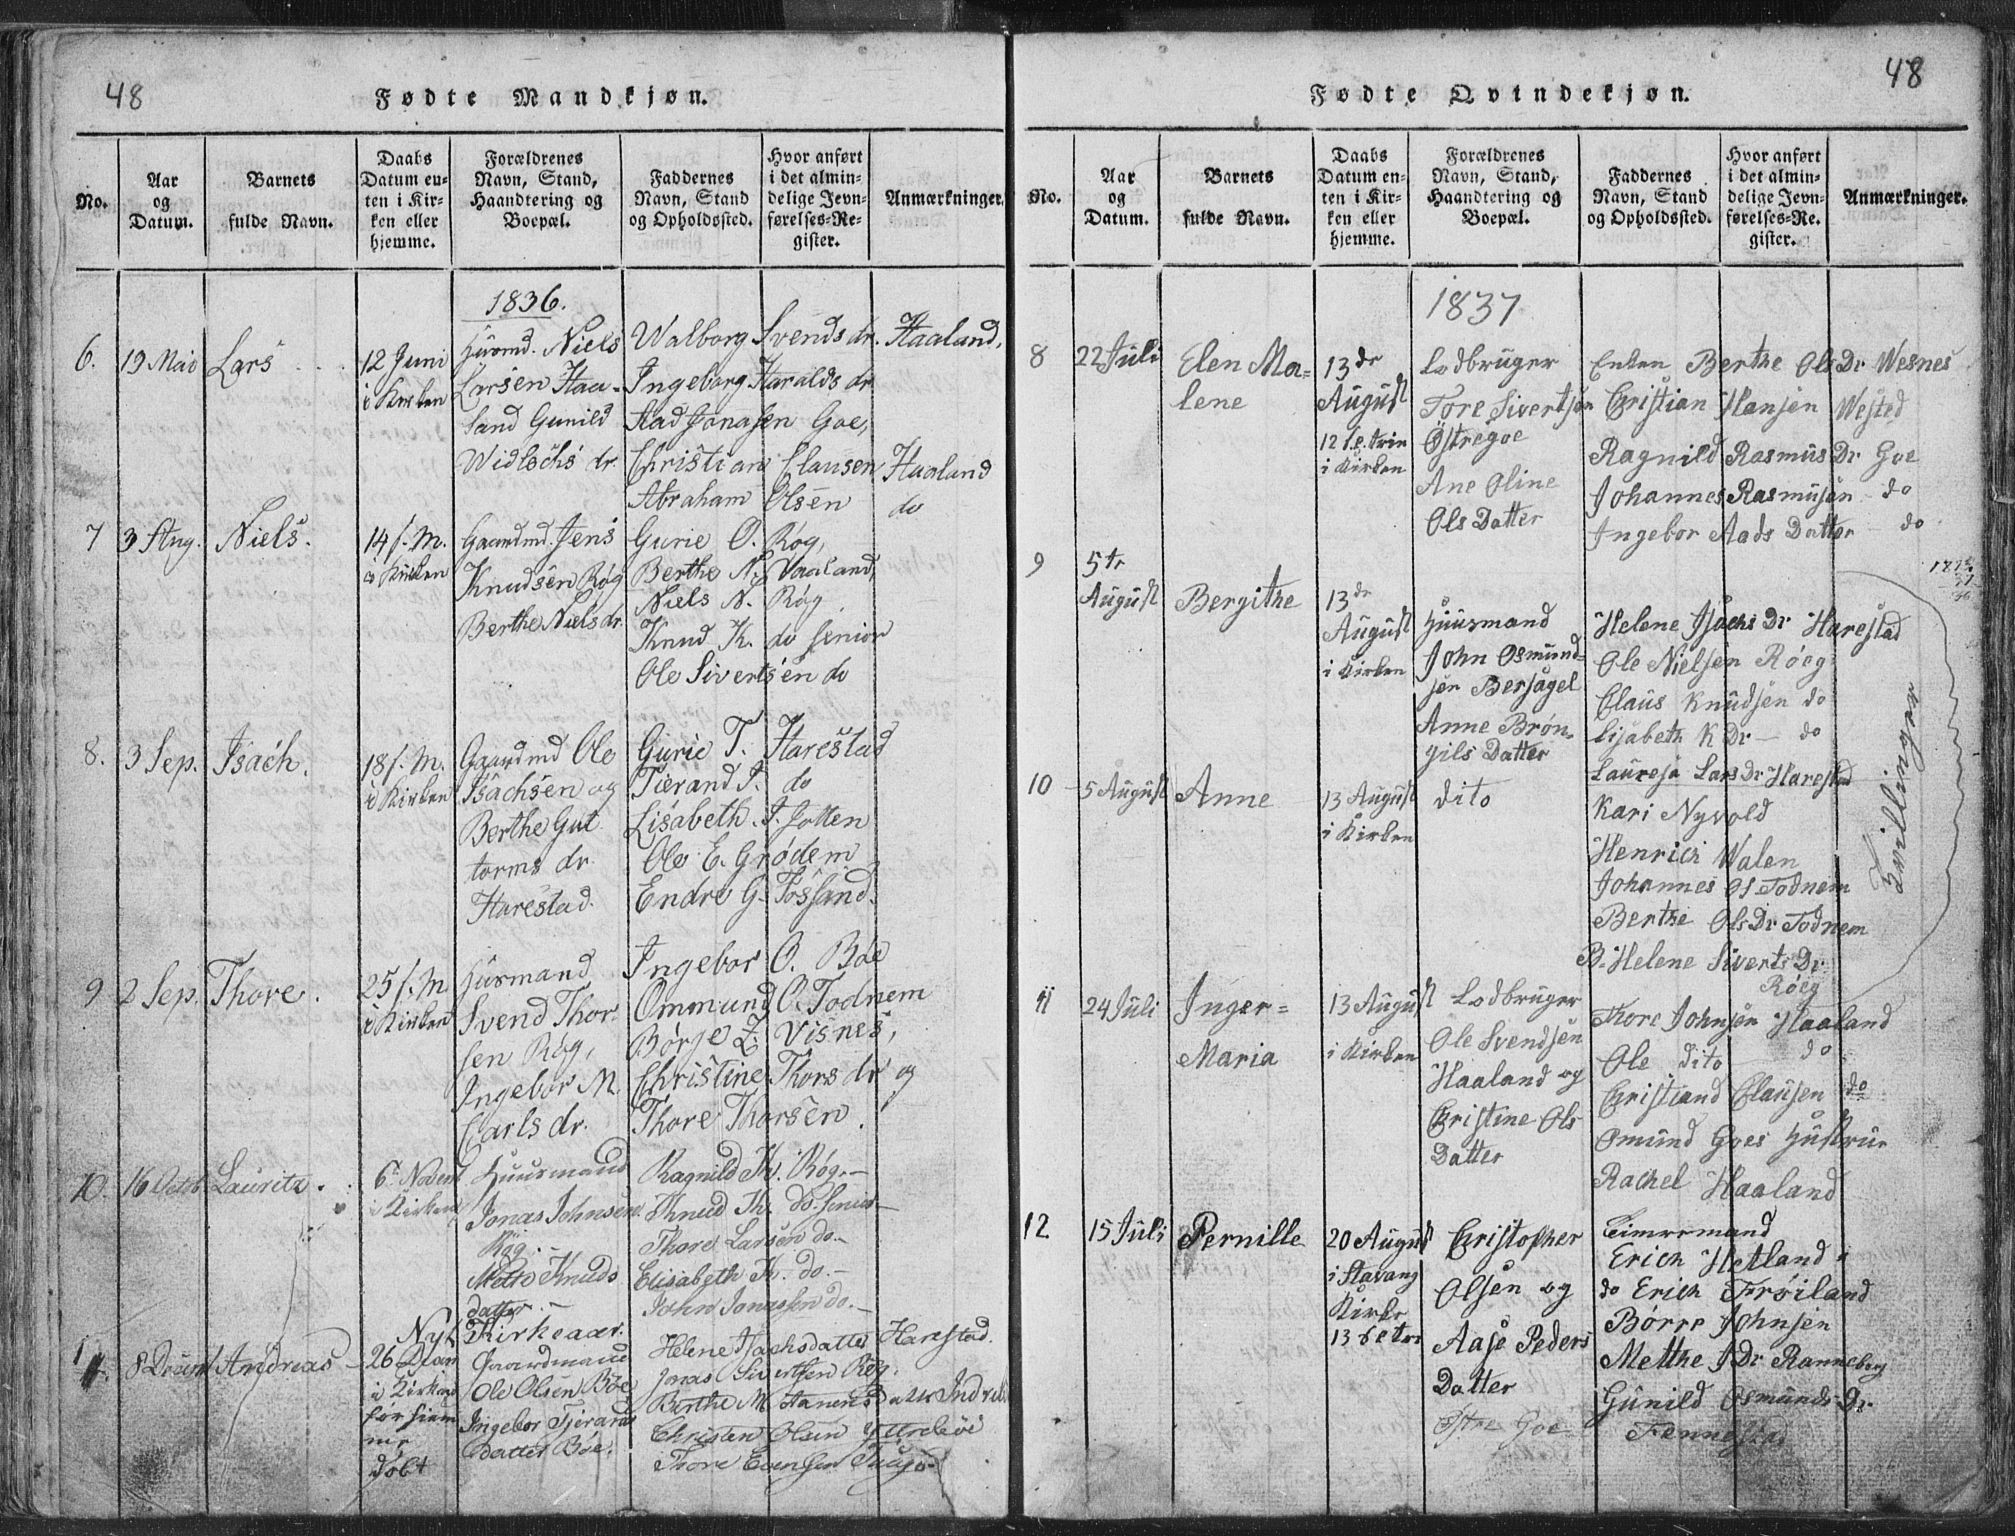 48
Fødte Mandkjøn.
No.
Aar
og
Datum.
Barnets
fulde Navn.
Daabs
Datum en-
ten i Kir-
ken eller
hjemme.
Forældrenes
Navn, Stand,
Haandtering og
Boepæl.
Faddernes
Navn, Stand
og Opholdssted.
Hvor anført
i det almin-
delige Jevn-
førelses-Re-
gister.
Anmærkninger.
1836.
6.
19 Mai
Lars
12 Juni
i Kirken
Huusmd. Niels
Larsen Haa-
land Gunild
Widlochs dr.
Walborg Svends dr. Haaland,
Ingeborg Haralds dr
Aad Jonasen Goe,
Christian Clausen Haaland
Abraham Olsen do
7
3 Aug.
Niels.
14 s. M.
i Kirken
Gaardmd. Jens
Knudsen Røg
Berthe Niels dr.
Gurie O. Røg,
Berthe N. Vaaland,
Niels N. Røg,
Knud K. do senior
Ole Sivertsen do
8.
3 Sep.
Isach.
18 s. M.
i Kirken
Gaardmd Ole
Isachsen og
Berthe Gut
torms dr.
Harestad.
Gurie T. Harestad
Tierand I. do
Lisabeth I. Jotten
Ole E. Grødem
Endre G. Fossand.
9
2 Sep.
Thore.
25 s. M
i Kirken
Husmand
Svend Thor
sen Røg,
Ingebor M.
Carls dr.
Ingebor O. Bøe
Ommund O. Todnem
Børge Z. Visnes,
Christine Thors dr og
Thore Thorsen.
10.
16 Octb
Lauritz.
6 Novem
i Kirken
Huusmand
Jonas Johnsen
Røg.
Mette Knuds
datter.
Ragnild K. Røg.
Knud K. do. senior
Thore Larsen do
Elisabeth K. do.
John Jonassen do.
Nyt Kirkeaar.
11.
Andreas
26 Decem
i Kirken
før hiem
me
døbt
Gaardmand
Ole Olsen Bøe
Ingebor Tjerands
datter Bøe.
Helene Isachsdatter Harestad.
Jonas Sivertsen Røg.
Christen Olsen Yttrebøe
48
Fødte Qvindekjøn.
No.
Aar
og
Datum.
Barnets
fulde Navn.
Daabs
Datum en-
ten i Kir-
ken eller
hjemme.
Forældrenes
Navn, Stand,
Haandtering og
Boepæl.
Faddernes
Navn, Stand
og Opholdssted.
Hvor anført
i det almin-
delige Jevn-
førelses-Re-
gister.
Anmærkninger.
1837
8
22 Juli
Elen Ma=
lene
13 de
August
12 s.e. trin
i Kirken
Lodbruger
Tore Sivertsen
Østregoe
Ane Oline
Ols Datter
Enken Berthe Ols Dr Wesnes
Christian Hansen Wested
Ragnild Rasmus Dr Goe
Johannes Rasmusen do
Ingebor Aads Datter do
9
5te
August
Bergithe
13 de
August
i Kirken
Huusmand
John Osmund=
sen Bersagel
Anne Brøn-
gils Datter
Helene Isachs Dr Harestad
Ole Nielsen Røeg
Claus Knudsen do
Lisabeth K Dr do
Lauresa Lars Dr Harestad
Tvillinger
10
5 August
Anne
13 August
i Kirken
dito
Kari Nyvold
Henrich Walen
Johannes Os. Todnem
Berthe Ols Dr Todnem
B. Helene Siverts Dr
Røeg
11
24 Juli
Inger=
Maria
13 August
i Kirken
Lodbruger
Ole Svendsen
Haaland og
Christine Ols
Datter
Thore Johnsen Haaland
Ole dito do
Christiand Clausen do
Osmund Goes Hustrue
Rachel Haaland
12
15 Juli
Pernille
20 August
i Stavang
Kirke
13 s e tr
Christopher
Olsen og
Aase Peders
Datter
Østre Goe
Timermand
Erich Hetland
do Erich Frøiland
Børre Johnsen
Metthe J Dr Ranneberg
Gunild Osmunds Dr
Fennestad